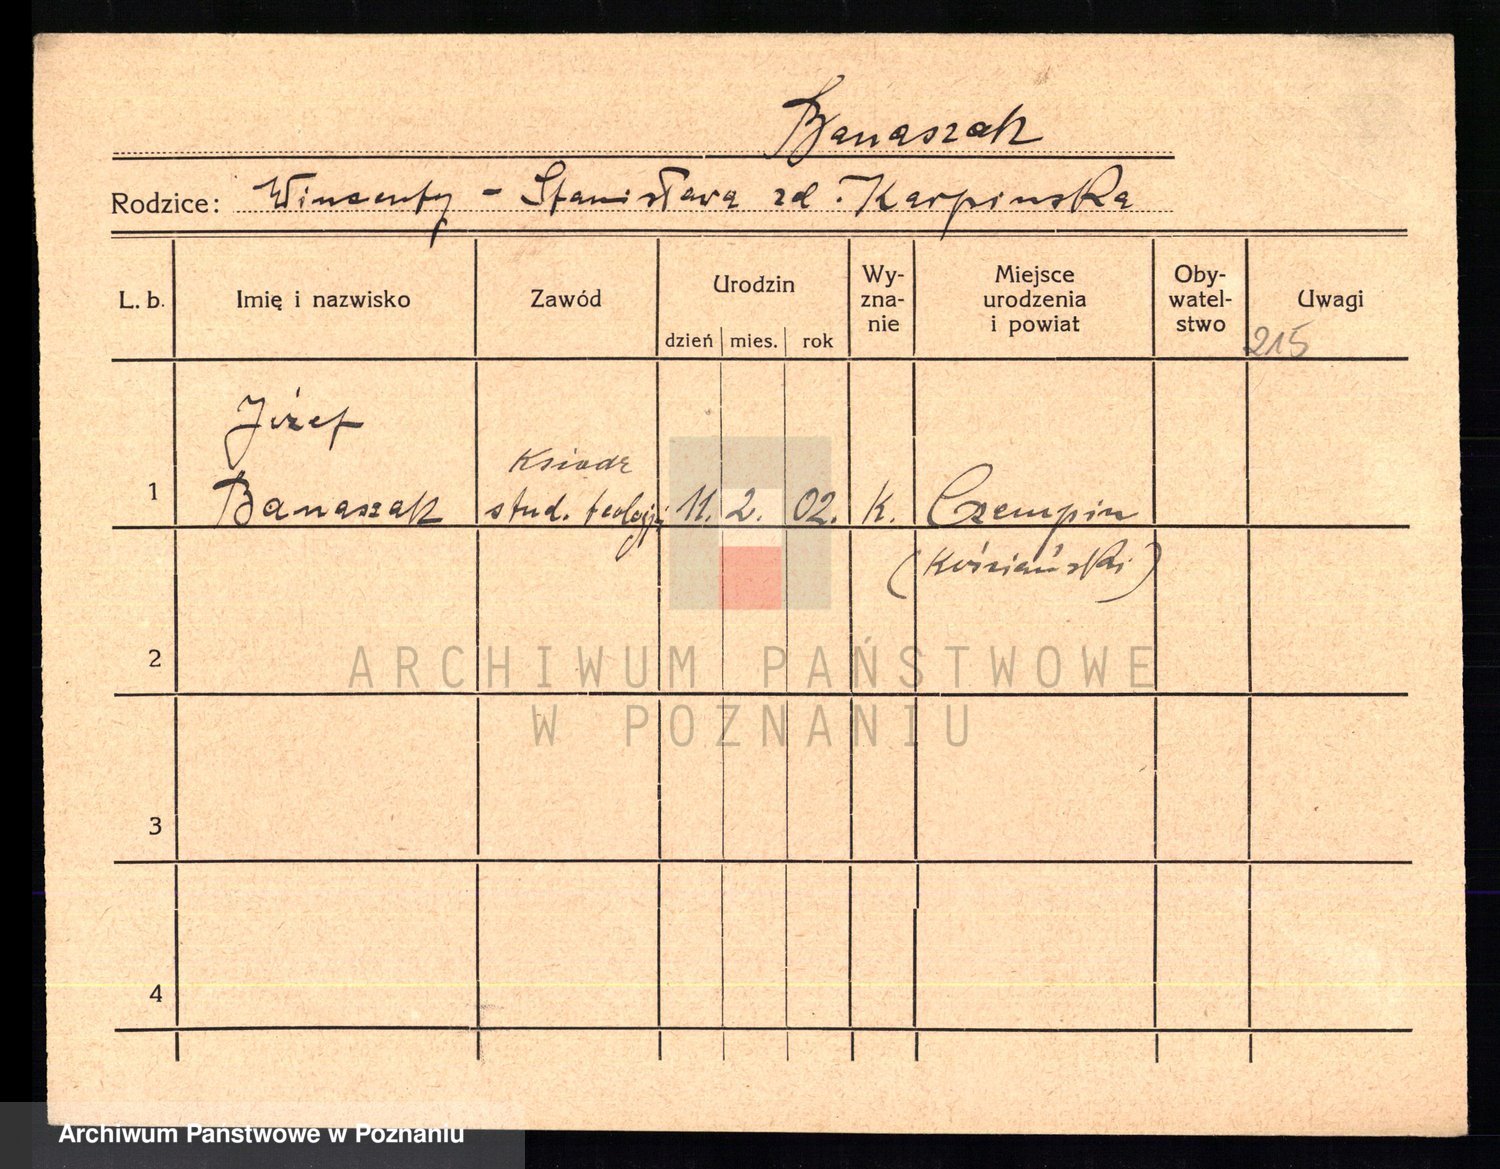 Banaszak
Rodzice: Wincenty - Stanisława zd. Karpinska
L. b. Imię i nazwisko Zawód Urodzin dzień mies. rok Wy-zna-nie Miejsce urodzenia i powiat Oby-watel-stwo Uwagi
215
Józef
Ksiądz
1 Banaszak stud. teologji 11. 2. 02. K. Czempin
(Kościański)
2
ARCHIWUM PAŃSTWOWE
W POZNANIU
3
4
Archiwum Państwowe w Poznaniu